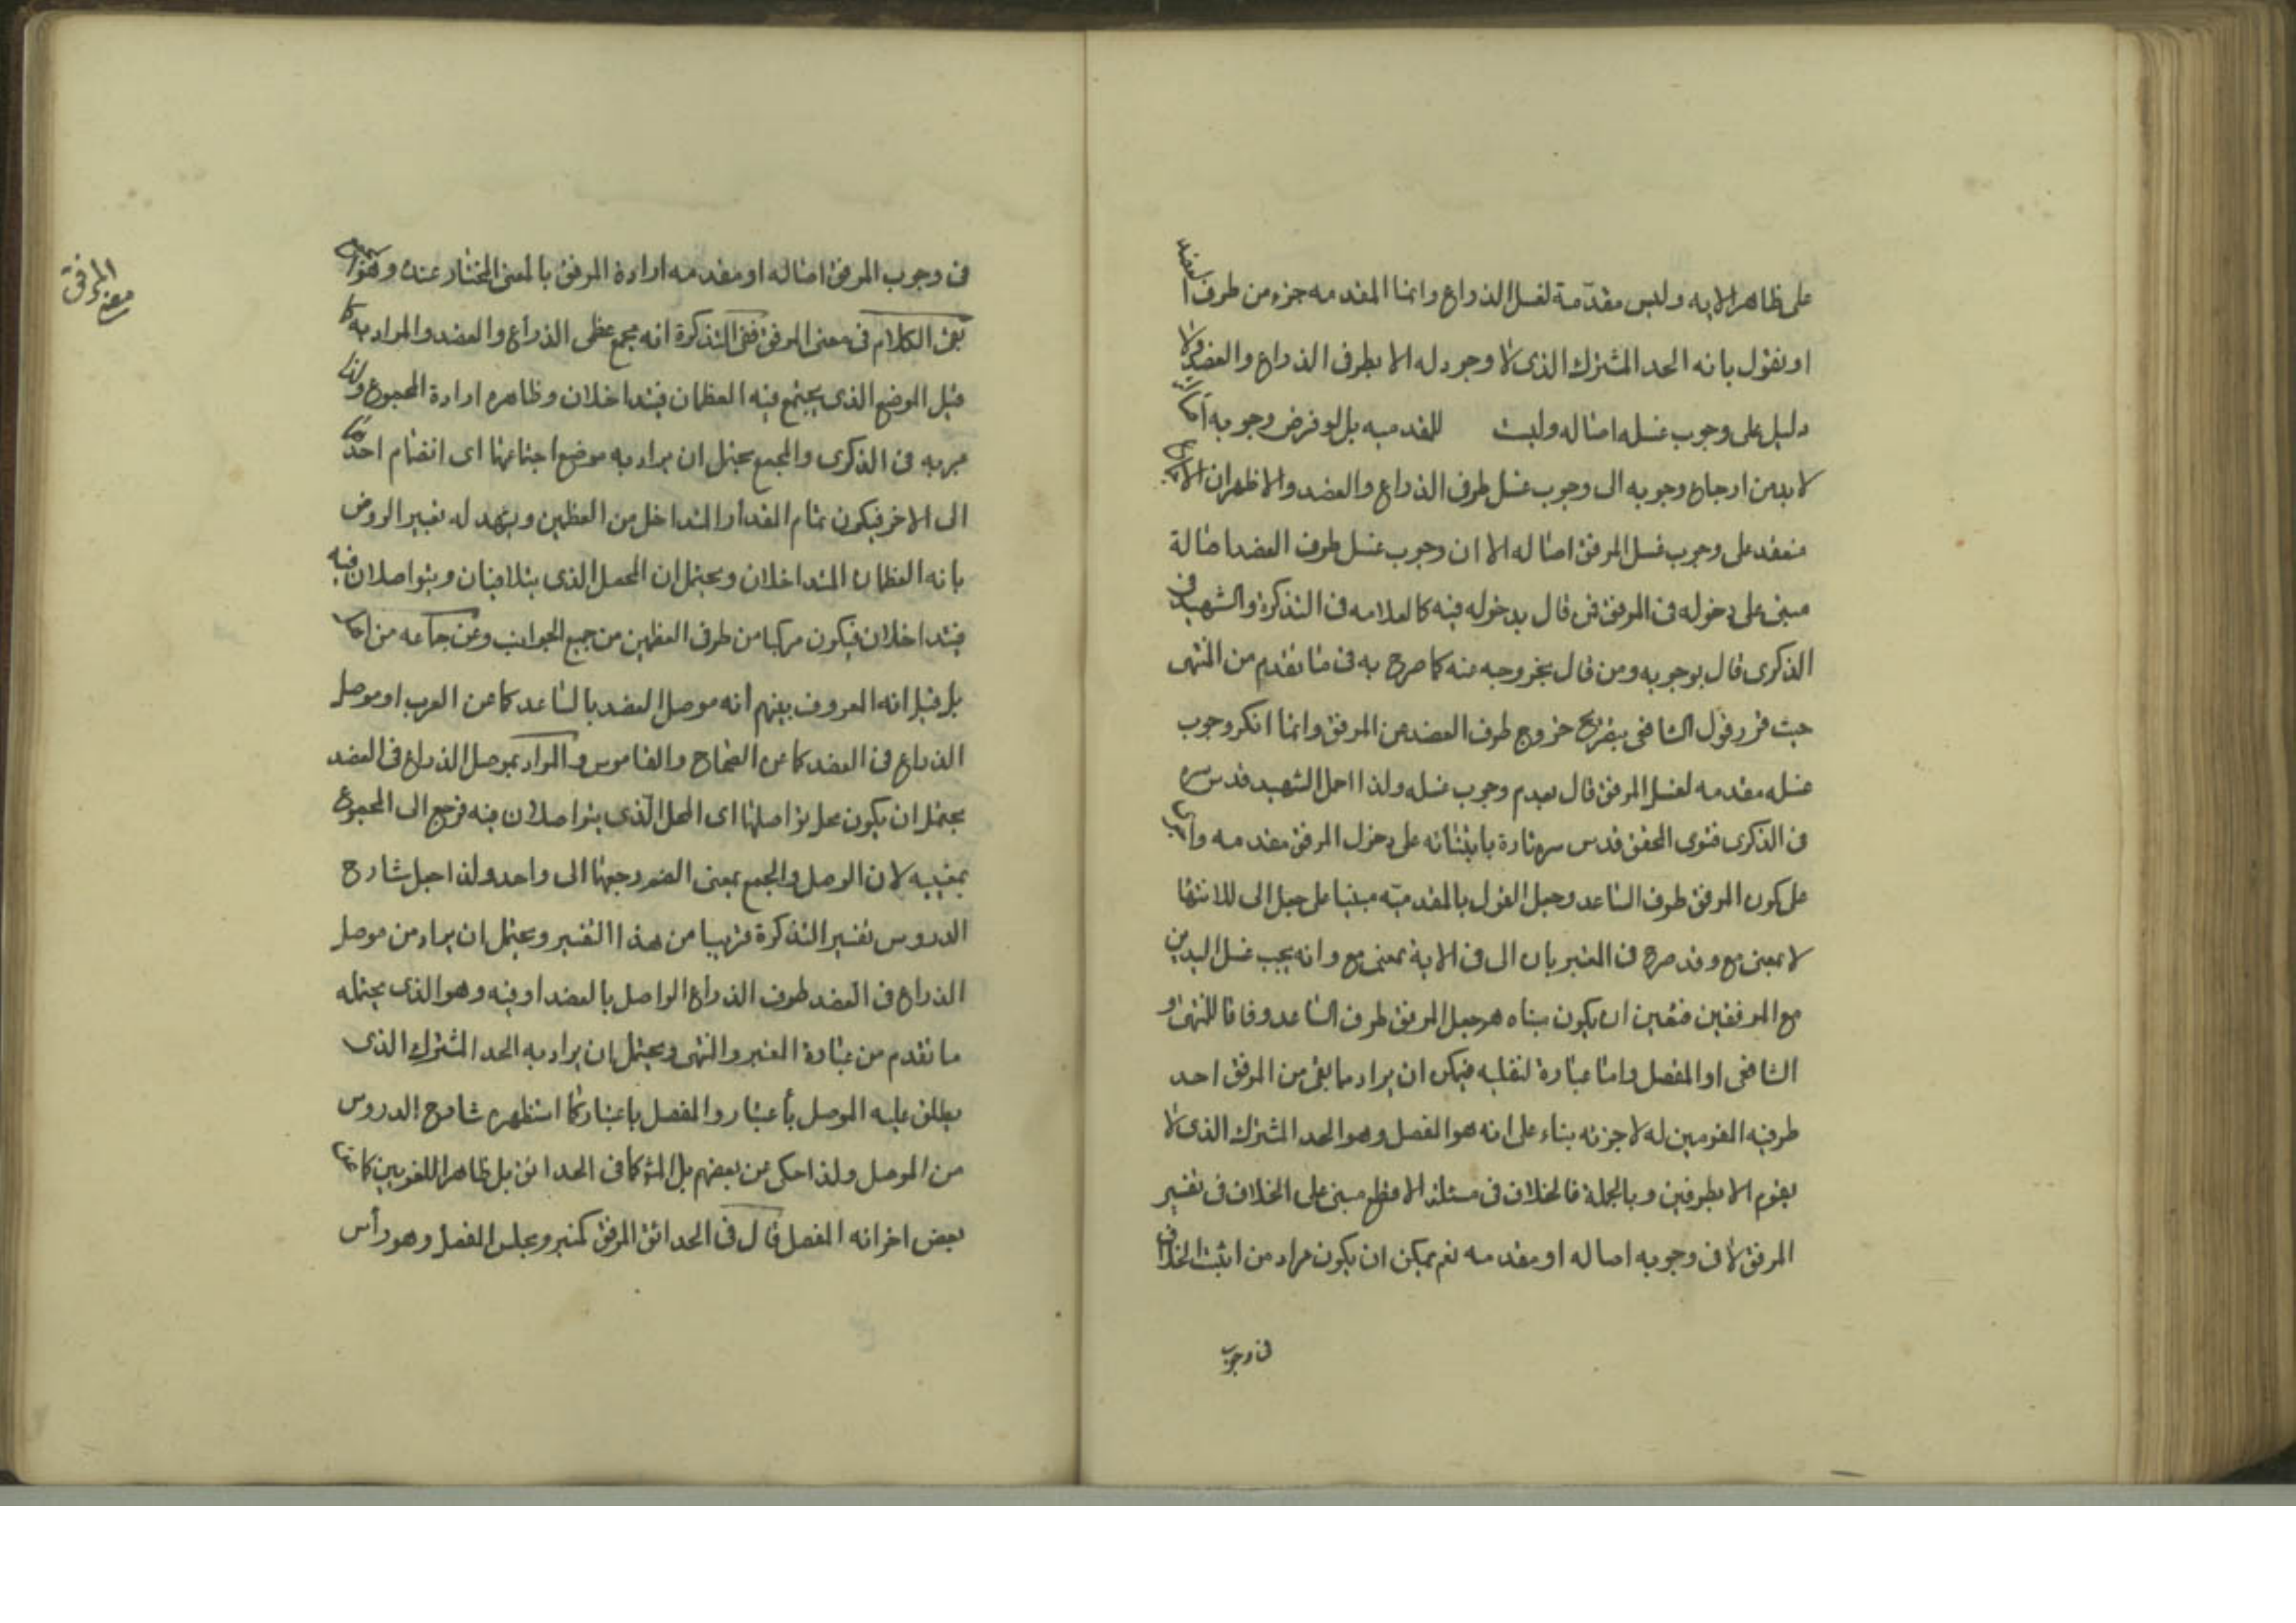 على ظاهر الايه وليس مقدّمة لغسل الذراع وانما المقدمه جزء من طرف العضد
او نقول بانه الحد المشترك الذى لا وجود له الا بطرفى الذراع والعضد ولا
دليل على وجوب غسله اصاله وليست للمقدميه بل لو فرض وجوبه
لا بد من ارجاع وجوبه الى وجوب غسل طرف الذراع والعضد والاظهر ان الاجماع
منعقد على وجوب غسل المرفق اصاله الا ان وجوب غسل طرف العضد اصالة
مبنى على دخوله فى المرفق فمن قال بدخوله فيه كالعلامه فى التذكرة والشهيد فى
الذكرى قال بوجوبه ومن قال بخروجه منه كما صرح به فى ما تقدم من المنتهى
حيث قرر قول الشافعى بتفريع خروج طرف العضد من المرفق وانما انكر وجوب
غسله مقدمه لغسل المرفق قال بعدم وجوب غسله ولذا احل الشهيد قدس سره
فى الذكرى فتوى المحقق قدس سره تارة بابتنائه على دخول المرفق مقدمه واخرى
على كون المرفق طرف الساعد وجعل القول بالمقدميّه مبنيا على جعل الى للانتها
لا بمعنى مع وقد صرح فى المعتبر بان الى فى الاية بمعنى مع وانه يجب غسل اليدين
مع المرفقين فتعين ان يكون مبناه هو جعل المرفق طرف الساعد وفاقا للمنتهى و
الشافعى او المفصل واما عبارة لنقلبه فيمكن ان يراد مما بقى من المرفق احد
طرفيه المقومين له لا جزئه بناء على انه هو المفصل وهو الحد المشترك الذى لا
يقوم الا بطرفين وبالجملة فالخلاف فى مسئلة الاقطع مبنى على الخلاف فى تفسير
المرفق لا فى وجوبه اصاله او مقدمه نعم يمكن ان يكون مراد من اثبت الخلاف
فى وجوب
فى وجوب المرفق اصاله او مقدمه ارادة المرفق بالمعنى المختار عنده وهو
بقى الكلام فى معنى المرفق ففى التذكرة انه مجمع عظمى الذراع والعضد والمراد به كما
قيل الموضع الذى يجتمع فيه العظمان فيتداخلان وظاهره ارادة المجموع ولذا
عبر به فى الذكرى والمجمع يحتمل ان يراد به موضع اجتماعهما اى انضمام احدهما
الى الاخر فيكون تمام المقدار المتداخل من العظمين ويشهد له تفسير الروض
بانه العظمان المتداخلان ويحتمل ان المحصل الذى يتلاقيان ويتواصلان فيه
فيتداخلان فيكون مركبا من طرفى العظمين من جميع الجوانب وعن جماعه من
بل قيل انه المعروف بينهم انه موصل العضد بالساعد كما عن المعرب او موصل
الذراع فى العضد كما عن الصحاح والقاموس والمراد بموصل الذراع فى العضد
يحتمل ان يكون محل تواصلهما اى المحل الّذى يتواصلان فيه فرجع الى المجموع
بمعنييه لان الوصل والجمع بمعنى الضم مرجعهما الى واحد ولذا جعل شارح
الدروس تفسير التذكرة قريبا من هذا التفسير ويحتمل ان يراد من موصل
الذراع فى العضد طرف الذراع الواصل بالعضد او فيه وهو الذى يحتمله
ما تقدم من عبارة المعتبر والمنتهى ويحتمل ان يراد به الحد المشترك الذى
يطلق عليه الموصل باعتبار والمفصل باعتبار كما استظهره شارح الدروس
من الموصل ولذا حكى عن بعضهم بل الاكثر كما فى الحدائق بل ظاهر اللغويين كما عن
بعض اخر انه المفصل قال فى الحدائق المرفق كمنبر ومجلس المفصل وهو رأس
معنى المرفق